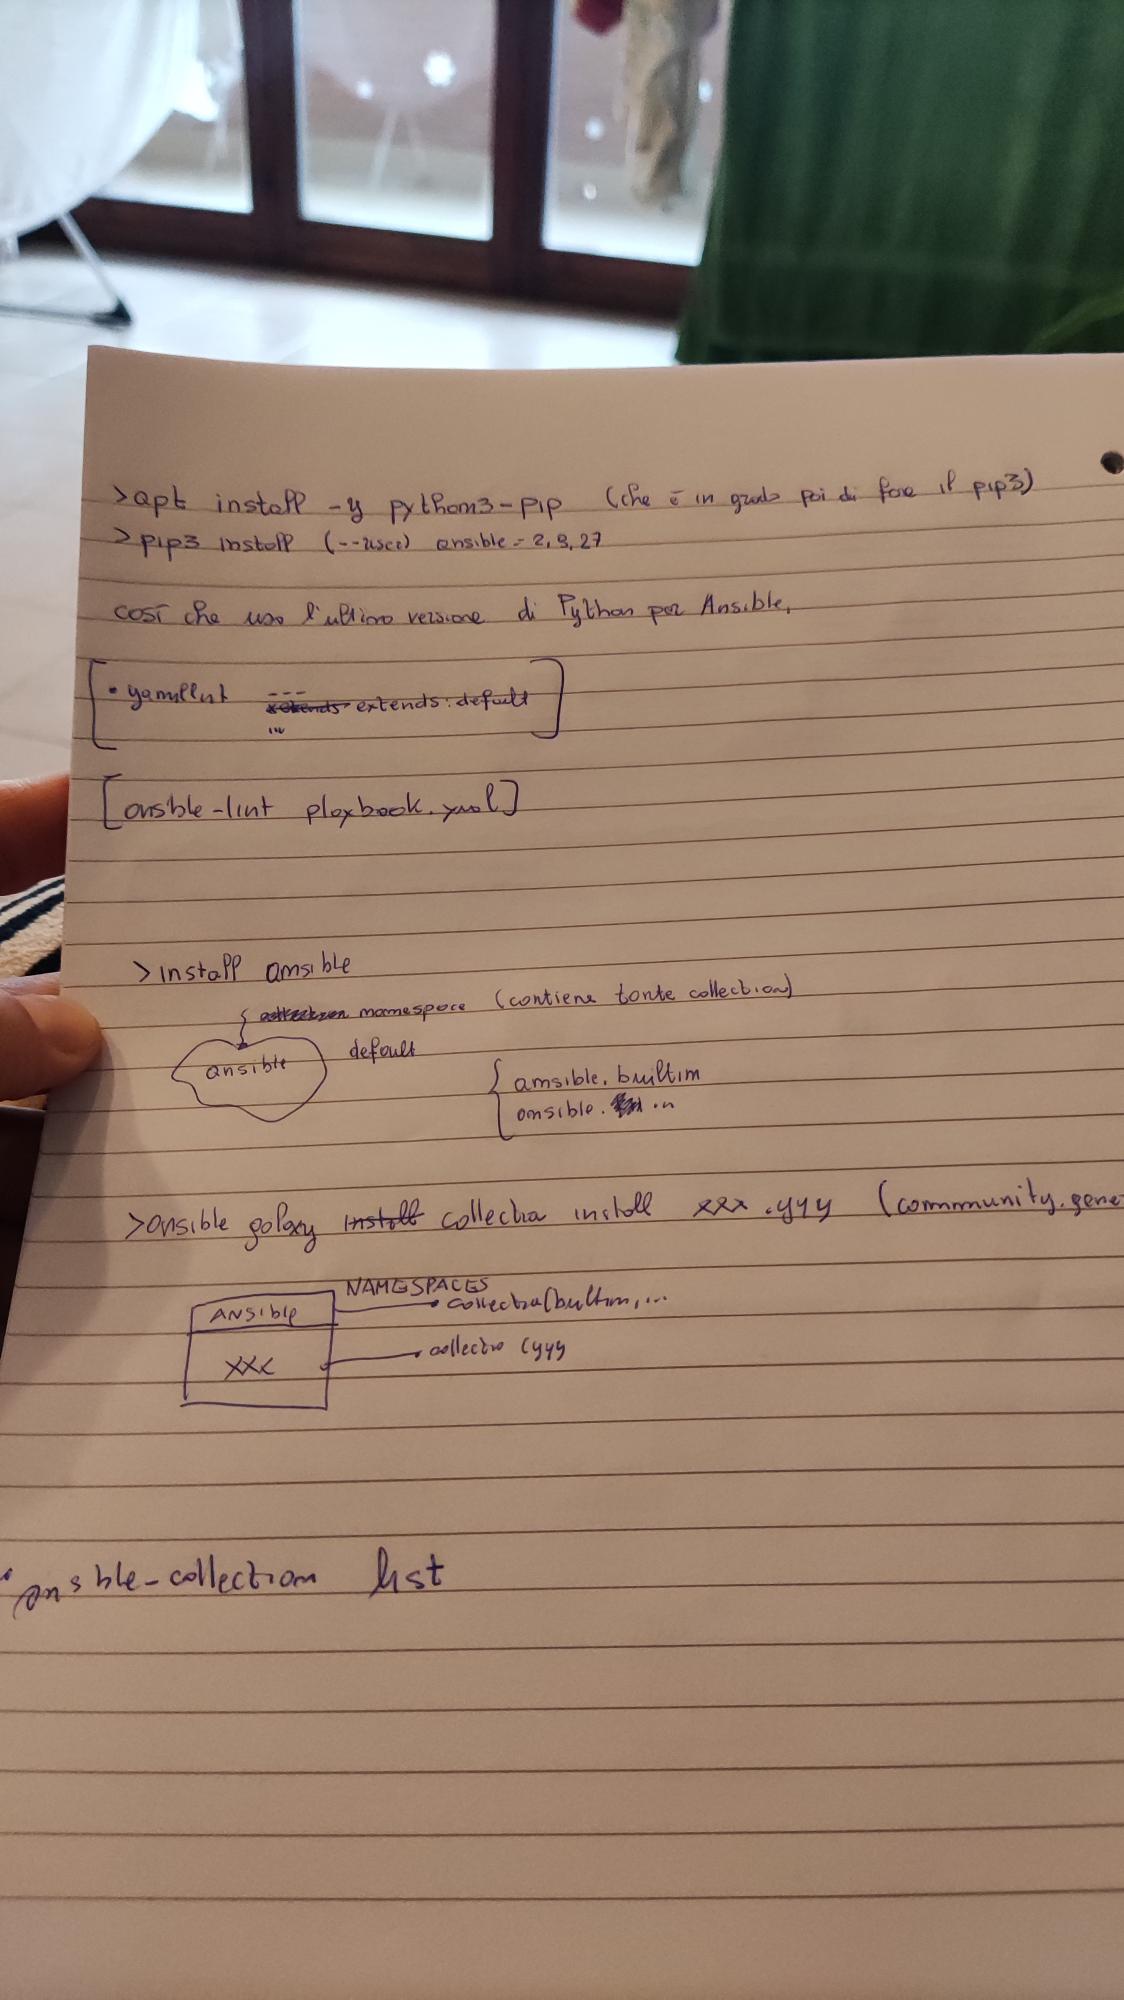 >apt install -y python3-pip (che è in grado poi di fare il pip3)
>pip3 install (--user) ansible = 2,9,27
così che uso l'ultima versione di Python per Ansible,
• yamllint ---
extends: default
...
[ansible-lint playbook.yml]
>install ansible
namespace (contiene tante collection)
ansible default
{ ansible.builtin
ansible. ..n
>ansible galaxy install collection install xxx.yyy (community.gene
NAMESPACES
ANSIble collection(builtin,...
xxx collection (yyy
• ansible-collection list